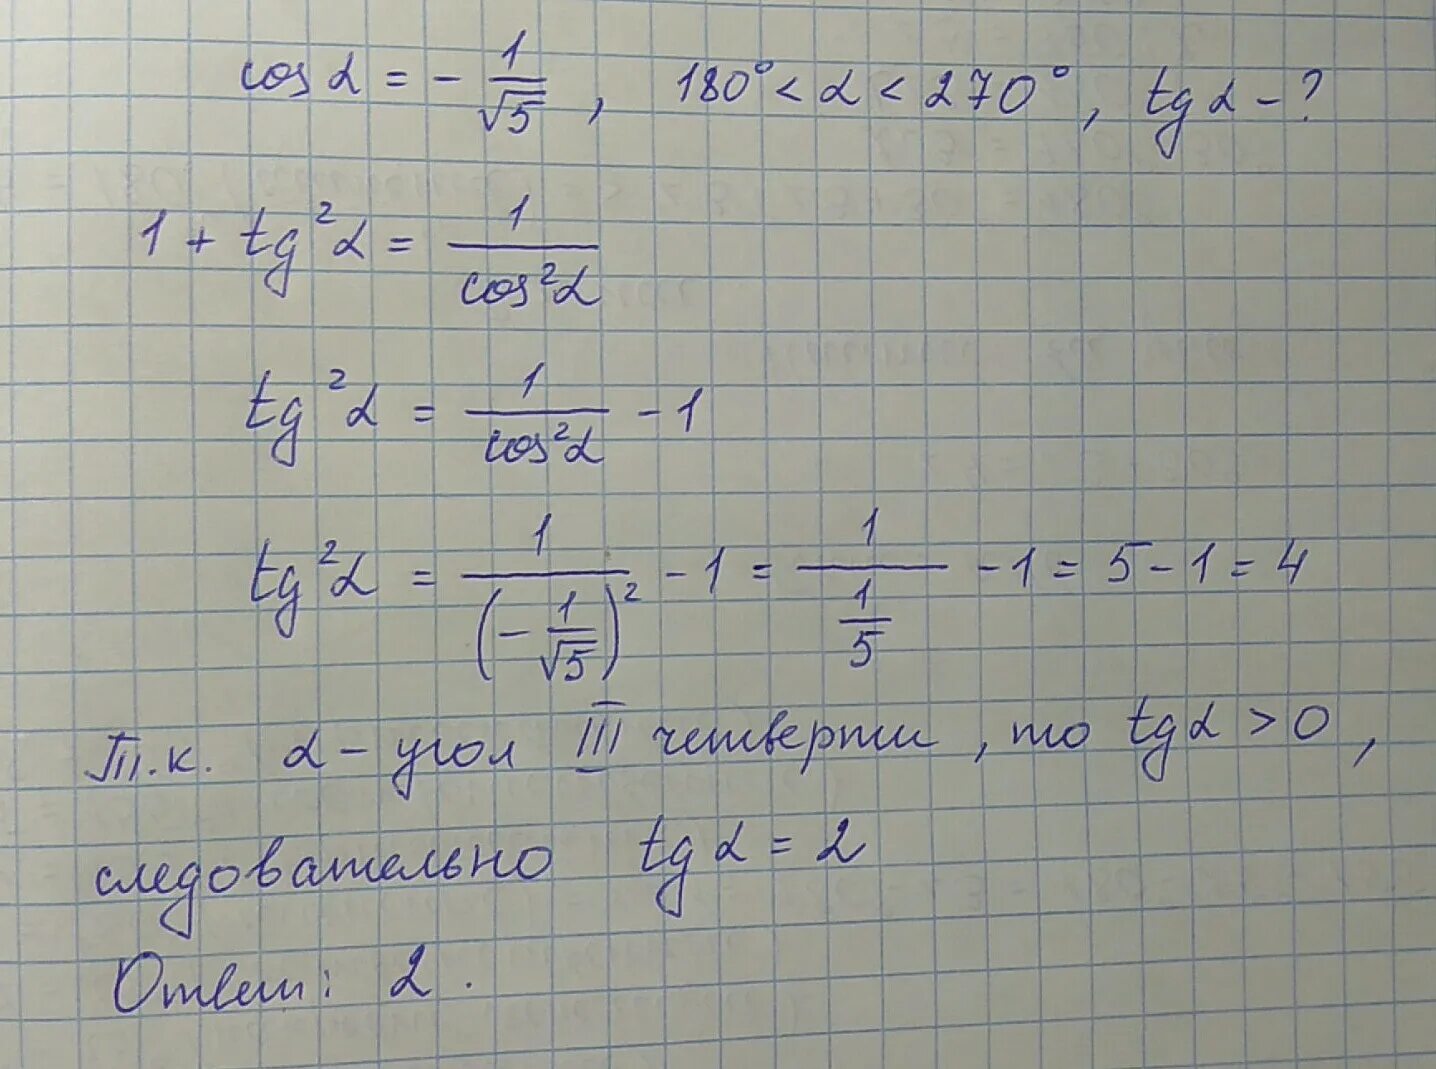 cos α = - 1/√5 , 180° < α < 270° , tg α - ?
1 + tg²α = 1/cos²α
tg²α = 1/cos²α - 1
tg²α = 1/(-1/√5)² - 1 = 1/(1/5) - 1 = 5 - 1 = 4
Т.к. α - угол III четверти , то tg α > 0 ,
следовательно tg α = 2
Ответ: 2 .